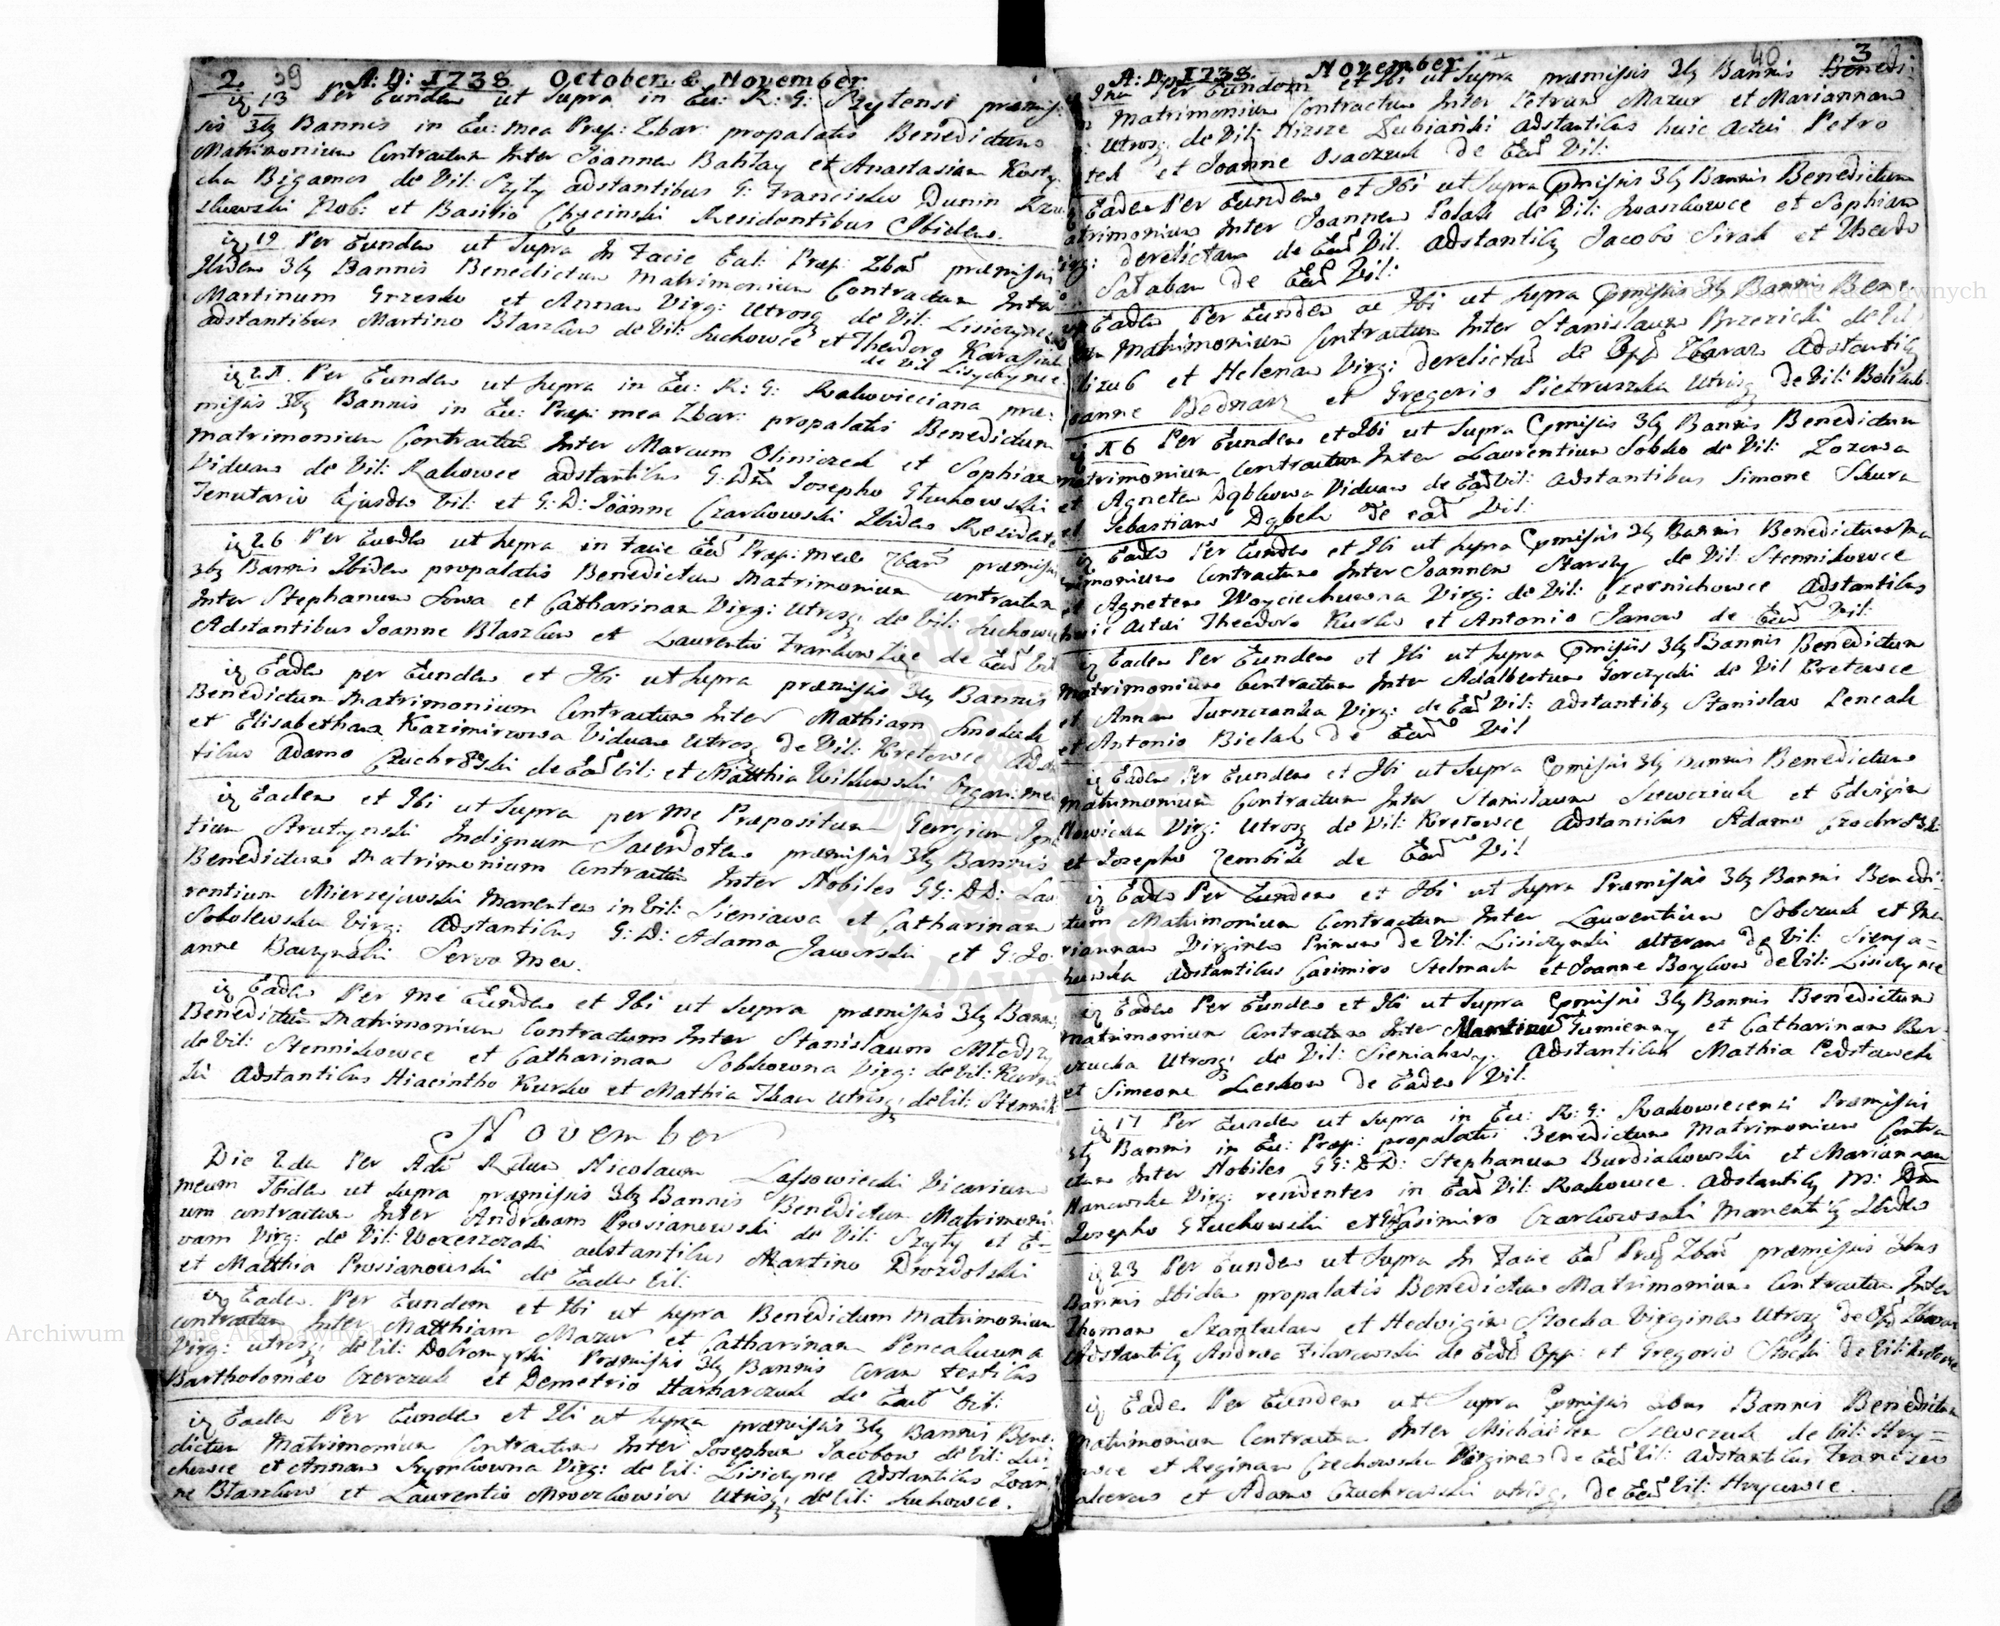 2. 39 A: D: 1738 October & November
iz 13 Per Eundem ut Supra in Ecc: R: G: Szytensi præmis=
sis 3bz Bannis in Ecc: mea Præp: Zbar: propalatis Benedictum
Matrimonium Contractum Inter Joannem Bahlay et Anastasiam
Bigamos de Vil: Szyty adstantibus G: Francisco Dunin
Nob: et Basilio Chycinski Residentibus Ibidem.
iz 19 Per Eundem ut Supra In Facie Eccl: Præp: Zbar præmissis
Ibidem 3bz Bannis Benedictum Matrimonium Contractum Inter
Martinum Grzesko et Annam Virg: Utrosq de Vil: Lisiczynce
adstantibus Martino Blaszkow de Vil: Luchowce et Theodoro Karassiuk
de Vil Lisyczynce
Per Eundem ut Supra in Ecc: R: G: Rakovieciana præ=
missis 3bz Bannis in Ecc: Præp: mea Zbar: propalatis Benedictum
Matrimonium Contractum Inter Marcum Oliniczek et Sophiam
Viduam de Vil: Rakowce adstantibus G: Josepho Gluchowski
Tenutario Ejusdem Vil: et G: D: Joanne Czarkowski Ibidem Residente
iz 26 Per Eundem ut supra in Facie Ecc Præp: meæ Zbar præmissis
3bz Bannis Ibidem propalatis Benedictum Matrimonium contractum
Inter Stephanum Sowa et Catharinam Virg: Utrosq de Vil: Luchowce
Adstantibus Joanne Blaszkow et Laurentio de Ead Vil
iz Eadem per Eundem et Ibi ut supra præmissis 3bz Bannis
Benedictum Matrimonium Contractum Inter Mathiam Smoluk
et Elisabetham Kazimirzowa Viduam Utrosq de Vil: Kretowce Adstan
tibus Adamo Czuchrowski de Ead Vil: et Matthia Witkowski Organ: meo
iz Eadem et Ibi ut Supra per Me Præpositum Georgium Igna
tium Strutynski Indignum Sacerdotem præmissis 3bz Bannis
Benedictum Matrimonium Contractum Inter Nobiles GG: DD: Lau
rentium Mierzejewski Manentem in Vil: Sieniawa et Catharinam
Sobolewska Virg: Adstantibus G: D: Adamo Jaworski et G: Jo
anne Baczynski Servo Meo.
iz Eadem Per Me Eundem et Ibi ut Supra præmissis 3bz Bannis
Benedictum Matrimonium Contractum Inter Stanislaum Mlodszy
de Vil: Stennikowce et Catharinam Sobkowna Virg: de Vil:
Adstantibus Hiacintho Kursko et Mathia Tkacz Utrisq de Vil: Stennik
November
Die 2da Per Adm Rdum Nicolaum Lassowiecki Vicarium
meum Ibidem ut supra præmissis 3bz Bannis Benedictum Matrimoni
um contractum Inter Andream Prosianowski de Vil: Szyty et E=
vam Virg: de Vil: adstantibus Martino Drozdolski
et Matthia Prosianowski de Eadem Vil:
iz Eadem Per Eundem et Ibi ut supra Benedictum Matrimonium
contractum Inter Matthiam Mazur et Catharinam Pencakuwna
Virg: utrosq de Vil: Dobromyrki Præmissis 3bz Bannis Coram testibus
Bartholomæo Czerczuk et Demetrio Harharczuk de Ead Vil:
iz Eadem Per Eundem et Ibi ut supra præmissis 3bz Bannis Bene
dictum Matrimonium Contractum Inter Josephum Jacobow de Vil: Lu
chowce et Annam Szymkowna Virg: de Vil: Lisiczynce Adstantibus Joan
ne Blaszkow et Laurentio Mroczkowicz Utrisq de Vil: Luchowce.
A: D: 1738. November 40 3
Per Eundem et Ibi ut Supra præmissis 3bz Bannis Benedi=
Matrimonium Contractum Inter Petrum Mazur et Mariannam
Utrosq de Vil: Nizsze Lubianki Adstantibus huic Actui Petro
et Joanne Osaczuk de Ead Vil:
Eadem Per Eundem et Ibi ut Supra Pmissis 3bz Bannis Benedictum
atrimonium Inter Joannem Polak de Vil: Iwaszkowce et Sophiam
derelictam de Ead Vil. Adstantibz Jacobo Sirak et Theodo
Sataban de Ead Vil:
Eadem Per Eundem ac Ibi ut supra Pmissis 3bz Bannis Bene
Matrimonium Contractum Inter Stanislaum Brzezicki de Vil
et Helenam Virg: derelictam de Opp Zbaraz Adstantibz
oanne Bednarz et Gregorio Pietruszka Utrisq de Vil:
iz 16 Per Eundem et Ibi ut Supra Pmissis 3bz Bannis Benedictum
matrimonium Contractum Inter Laurentium Sobko de Vil: Lozowa
et Agnetem Dąbkowa Viduam de Ead Vil: Adstantibus Simone Skura
et Sebastiano Dąbek de ead Vil:
iz Eadem Per Eundem et Ibi ut supra Pmissis 3bz Bannis Benedictum Ma
trimonium Contractum Inter Joannem Starszy de Vil: Stennikowce
et Agnetem Woyciechuwna Virg: de Vil: Czernichowce Adstantibus
huic Actui Theodoro Kursko et Antonio Janow de Ead Vil:
iz Eadem Per Eundem et Ibi ut supra Pmissis 3bz Bannis Benedictum
Matrimonium Contractum Inter Adalbertum Gorczycki de Vil Kretowce
et Annam Turszczanka Virg: de Ead Vil: Adstantibz Stanislao Pencak
et Antonio Bielak de Ead Vil
iz Eadem Per Eundem et Ibi ut Supra Pmissis 3bz Bannis Benedictum
Matrimonium Contractum Inter Stanislaum Szewcziuk et Edvigim
Nowicka Virg: Utrosq de Vil: Kretowce Adstantibus Adamo
et Josepho Zembik de Ead Vil
iz Eadem Per Eundem et Ibi ut supra Præmissis 3bz Bannis Benedi=
tum Matrimonium Contractum Inter Laurentium Sobczuk et Ma
riannam Virginem Primum de Vil: Lisiczynski alteram de Vil: Sienja=
howska Adstantibus Casimiro Stelmach et Joanne Borykow de Vil: Lisiczynce
iz Eadem Per Eundem et Ibi ut Supra Pmissis 3bz Bannis Benedictum
Matrimonium Contractum Inter Martinum Tumienny et Catharinam Bur=
czucka Utrosq de Vil: Sieniahowy. Adstantibus Mathia Podstawek
et Simeone Leskow de Eadem Vil:
iz 17 Per Eundem ut Supra in Ecc: R: G: Rakowiecensi Præmissis
3bz Bannis in Ecc: Præp: propalatis Benedictum Matrimonium Contra
ctum Inter Nobiles GG: DD: Stephanum Burdiakowski et Mariannam
Virg: residentes in Ead Vil: Rakowce. Adstantibz M:
Josepho Gluchowski et Casimiro Czarkowski Manentibz Ibidem
iz 23 Per Eundem ut Supra In Facie Ecc Præp Zbar præmissis 3bus
Bannis Ibidem propalatis Benedictum Matrimonium Contractum Inter
Thomam Szantulam et Hedvigim Stocka Virginem Utrosq de Opp Zbaraz
Adstantibz Andrea Filarowski de Ead Opp: et Gregorio Stocki de Vil:
iz Eadem Per Eundem ut Supra Pmissis 3bus Bannis Benedictum
Matrimonium Contractum Inter Michaelem Szewczuk de Vil: Hry=
cowce et Reginam Czechowska Virginem de Ead Vil: Adstantibus Francisco
et Adamo Czuchrowski utrisq de Ead Vil: Hrycowce.
Archiwum Główne Akt Dawnych